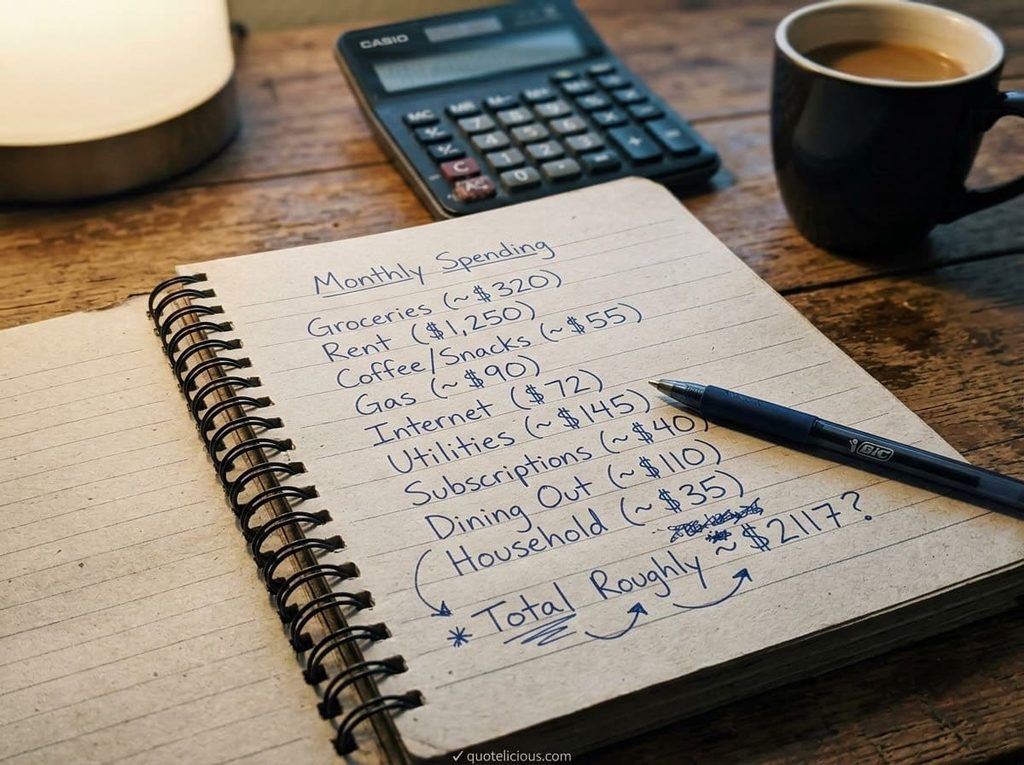 CASIO
MC MR M- M+
7 8 9
4 5 6 ×
C 1 2 3 +
AC 0
BIC
Monthly Spending
Groceries (~$320)
Rent ($1,250)
Coffee/Snacks (~$55)
Gas (~$90)
Internet ($72)
Utilities (~$145)
Subscriptions (~$40)
Dining Out (~$110)
Household (~$35)
* Total Roughly ~$2117?
✓ quotelicious.com